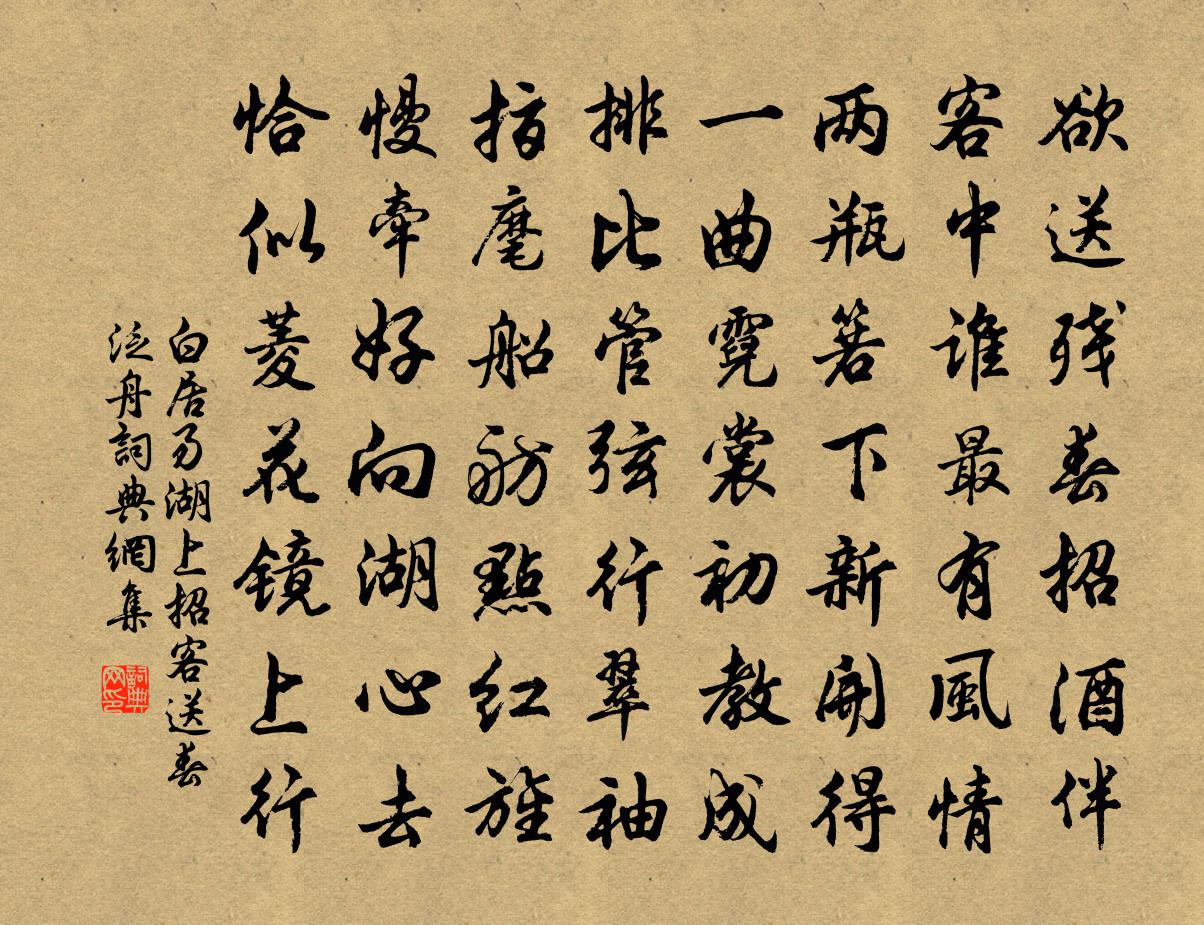 欲送残春招酒伴
客中谁最有風情
两瓶箬下新開得
一曲霓裳初教成
排比管弦行翠袖
指麾船舫點红旌
慢牽好向湖心去
恰似菱花镜上行
白居易湖上招客送春
泛舟詞典網集
詞典网印